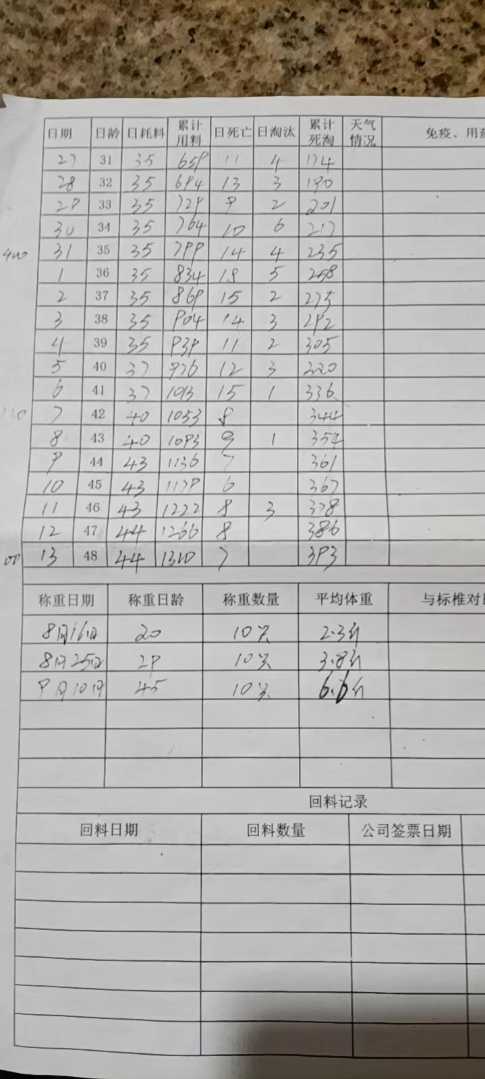 日期 日龄 日耗料 累计用料 日死亡 日淘汰 累计死淘 天气情况 免疫、用药
27 31 35 659 11 4 174
28 32 35 694 13 3 190
29 33 35 729 9 2 201
30 34 35 764 10 6 217
31 35 35 799 14 4 235
1 36 35 834 18 5 258
2 37 35 869 15 2 275
3 38 35 904 14 3 292
4 39 35 939 11 2 305
5 40 37 976 12 3 320
6 41 37 1013 15 1 336
7 42 40 1053 8 344
8 43 40 1093 9 1 354
9 44 43 1136 7 361
10 45 43 1179 6 367
11 46 43 1222 8 3 378
12 47 44 1266 8 386
13 48 44 1310 7 393
称重日期 称重日龄 称重数量 平均体重 与标椎对
8月16日 20 10只 2.3斤
8月25日 29 10只 3.8斤
9月10日 45 10只 6.6斤
回料记录
回料日期 回料数量 公司签票日期